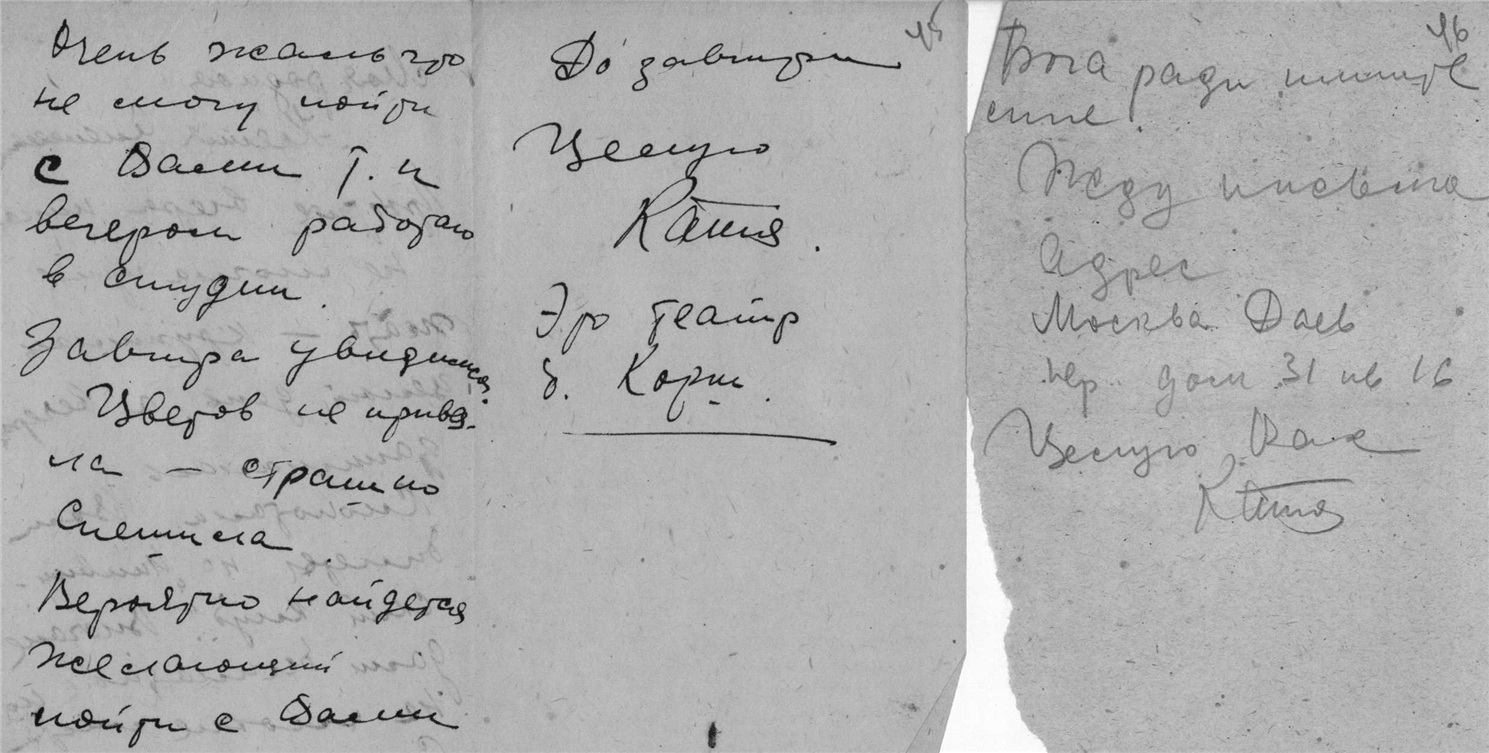 Очень жаль что
не смогу пойти
с Вами т. к
вечером работаю
в студии.
Завтра увидимся.
Цветов не привез-
ла – страшно
спешила.
Вероятно найдется
желающий
пойти с Вами
45
До завтра
Целую
Катя.
Это театр
б. Корш.
46
Бога ради пишите
мне.
Жду письма
Адрес
Москва Даев
пер. дом 31 кв 16
Целую Вас
Катя